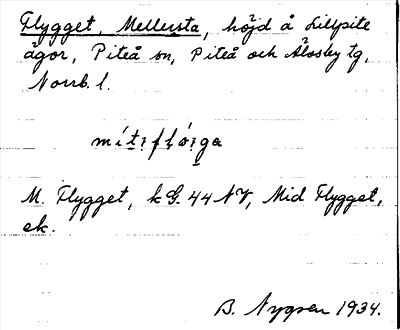 Flygget, Mellersta, höjd å Lillpite
ägor, Piteå sn, Piteå och Älvsby tg,
Norrb. l.
M. Flygget, k G. 44 NV, Mid Flygget,
ek.
B. Nygren 1934.